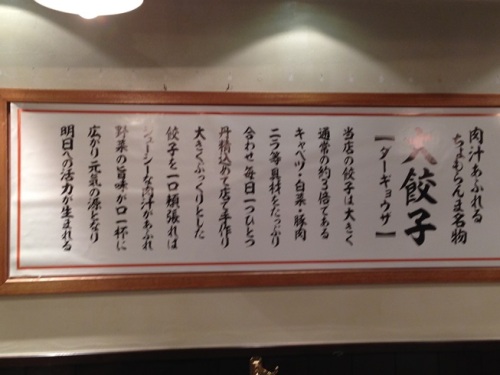 肉汁あふれる
ちょもらんま名物
大餃子
【ダーギョウザ】
当店の餃子は大きく
通常の約3倍である
キャベツ・白菜・豚肉
ニラ等具材をたっぷり
合わせ毎日一つひとつ
丹精込めて店で手作り
大きくぷっくりとした
餃子を一口頬張れば
ジューシーな肉汁があふれ
野菜の旨味が口一杯に
広がり元気の源となり
明日への活力が生まれる